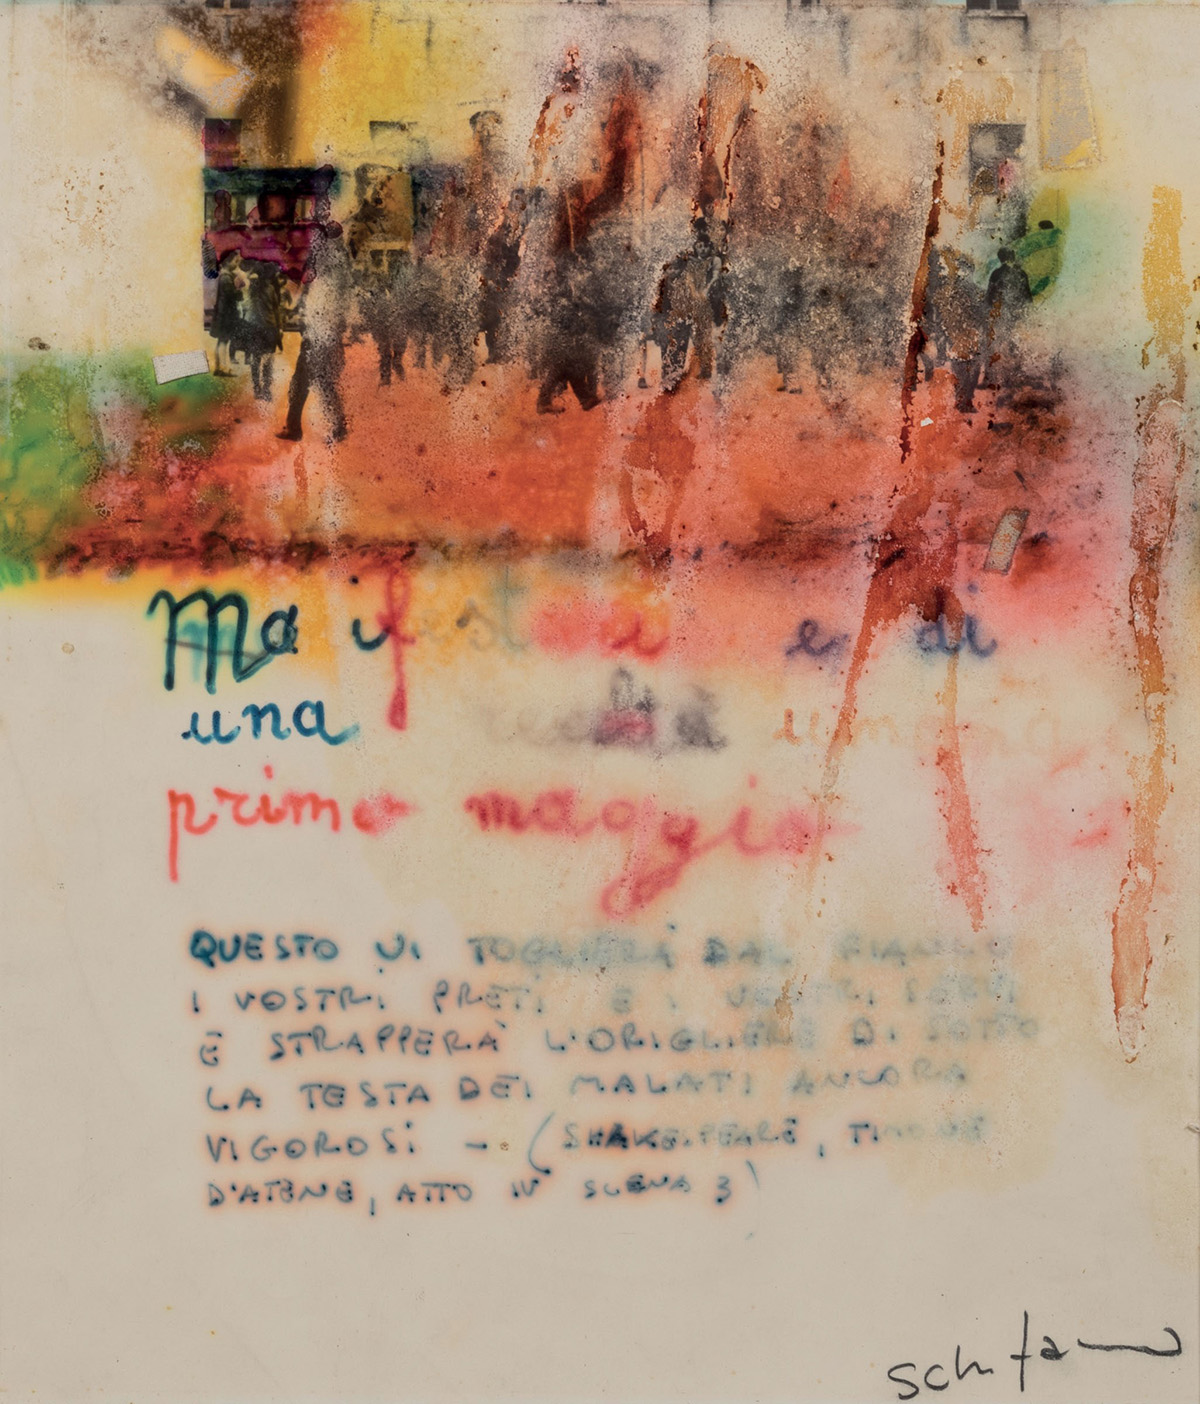 Ma il e di
una
primo maggio
QUESTO VI TOGLIERÀ DAL FIANCO
I VOSTRI PRETI E I VOSTRI SERVI
E STRAPPERÀ L'ORIGLIERE DI SOTTO
LA TESTA DEI MALATI ANCORA
VIGOROSI - (SHAKESPEARE, TIMONE
D'ATENE, ATTO IV SCENA 3)
Schifano